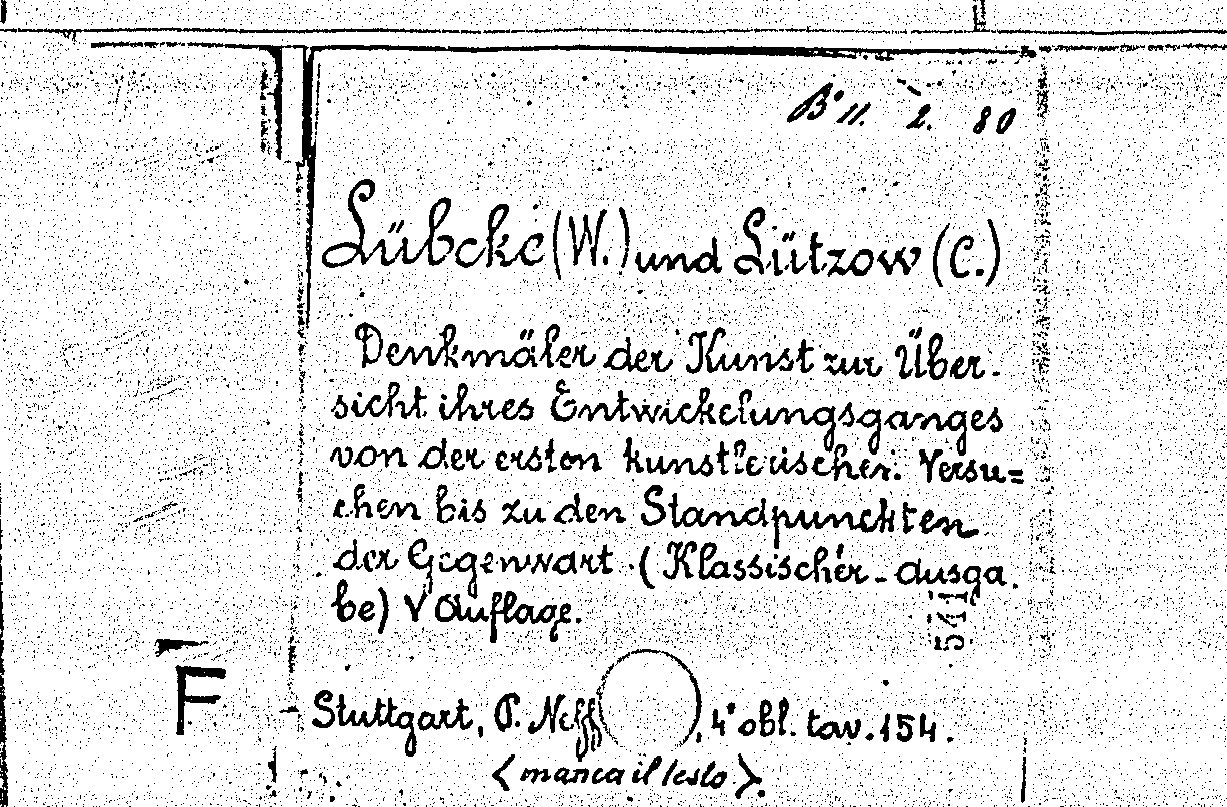 B° 11. 2. 80
Lübcke (W.) und Lützow (C.)
Denkmäler der Kunst zur Über-
sicht ihres Entwickelungsganges
von der ersten kunstlerischen Versu=
chen bis zu den Standpunckten
der Gegenwart (Klassischer-Ausga.
be) V Auflage.
541
F
Stuttgart, P. Neff, 4° obl. tav. 154.
<manca il testo>.